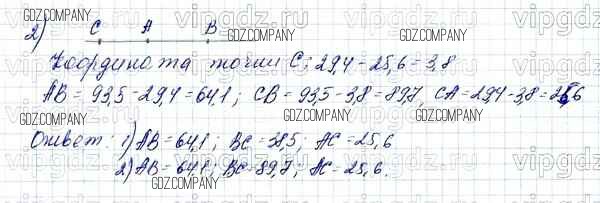 2) C A B
Координата точки C: 29,4 - 25,6 = 3,8
AB = 93,5 - 29,4 = 64,1; CB = 93,5 - 3,8 = 89,7, CA = 29,4 - 3,8 = 25,6
Ответ: 1) AB = 64,1; BC = 38,5; AC = 25,6
2) AB = 64,1; BC = 89,7; AC = 25,6.
GDZ.COMPANY
vipgdz.ru